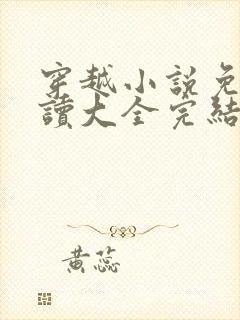 穿越小說免
讀大全完結
黃蕊